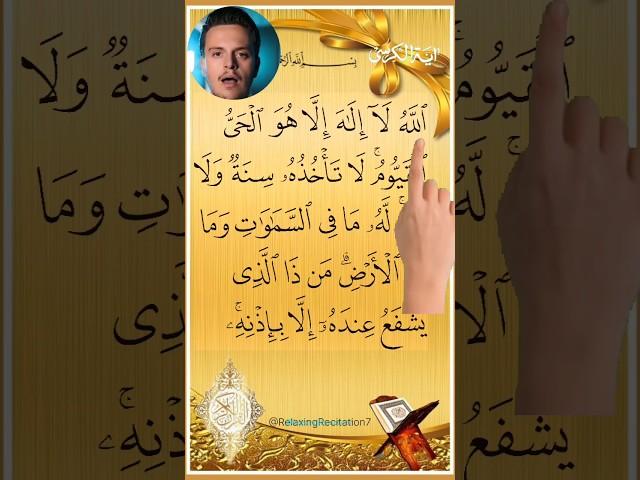 بِسْمِ ٱللَّهِ
آيَةُ الْكُرْسِي
ٱللَّهُ لَآ إِلَٰهَ إِلَّا هُوَ ٱلْحَىُّ
ٱلْقَيُّومُ ۚ لَا تَأْخُذُهُۥ سِنَةٌ وَلَا
لَّهُۥ مَا فِى ٱلسَّمَٰوَٰتِ وَمَا
ٱلْأَرْضِ ۗ مَن ذَا ٱلَّذِى
يَشْفَعُ عِندَهُۥٓ إِلَّا بِإِذْنِهِۦ ۚ
@RelaxingRecitation7